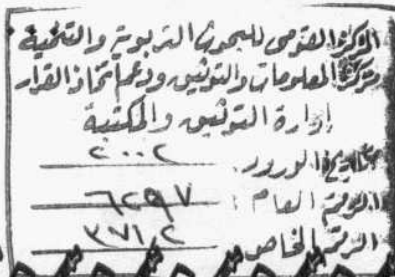 المركز القومى للبحوث التربوية والتنمية
مركز المعلومات والتوثيق ودعم اتخاذ القرار
إدارة التوثيق والمكتبة
تاريخ الورود: ٢٠٠٢
الرقم العام: ٦٢٩٧
الرقم الخاص: ٣٧١,٢